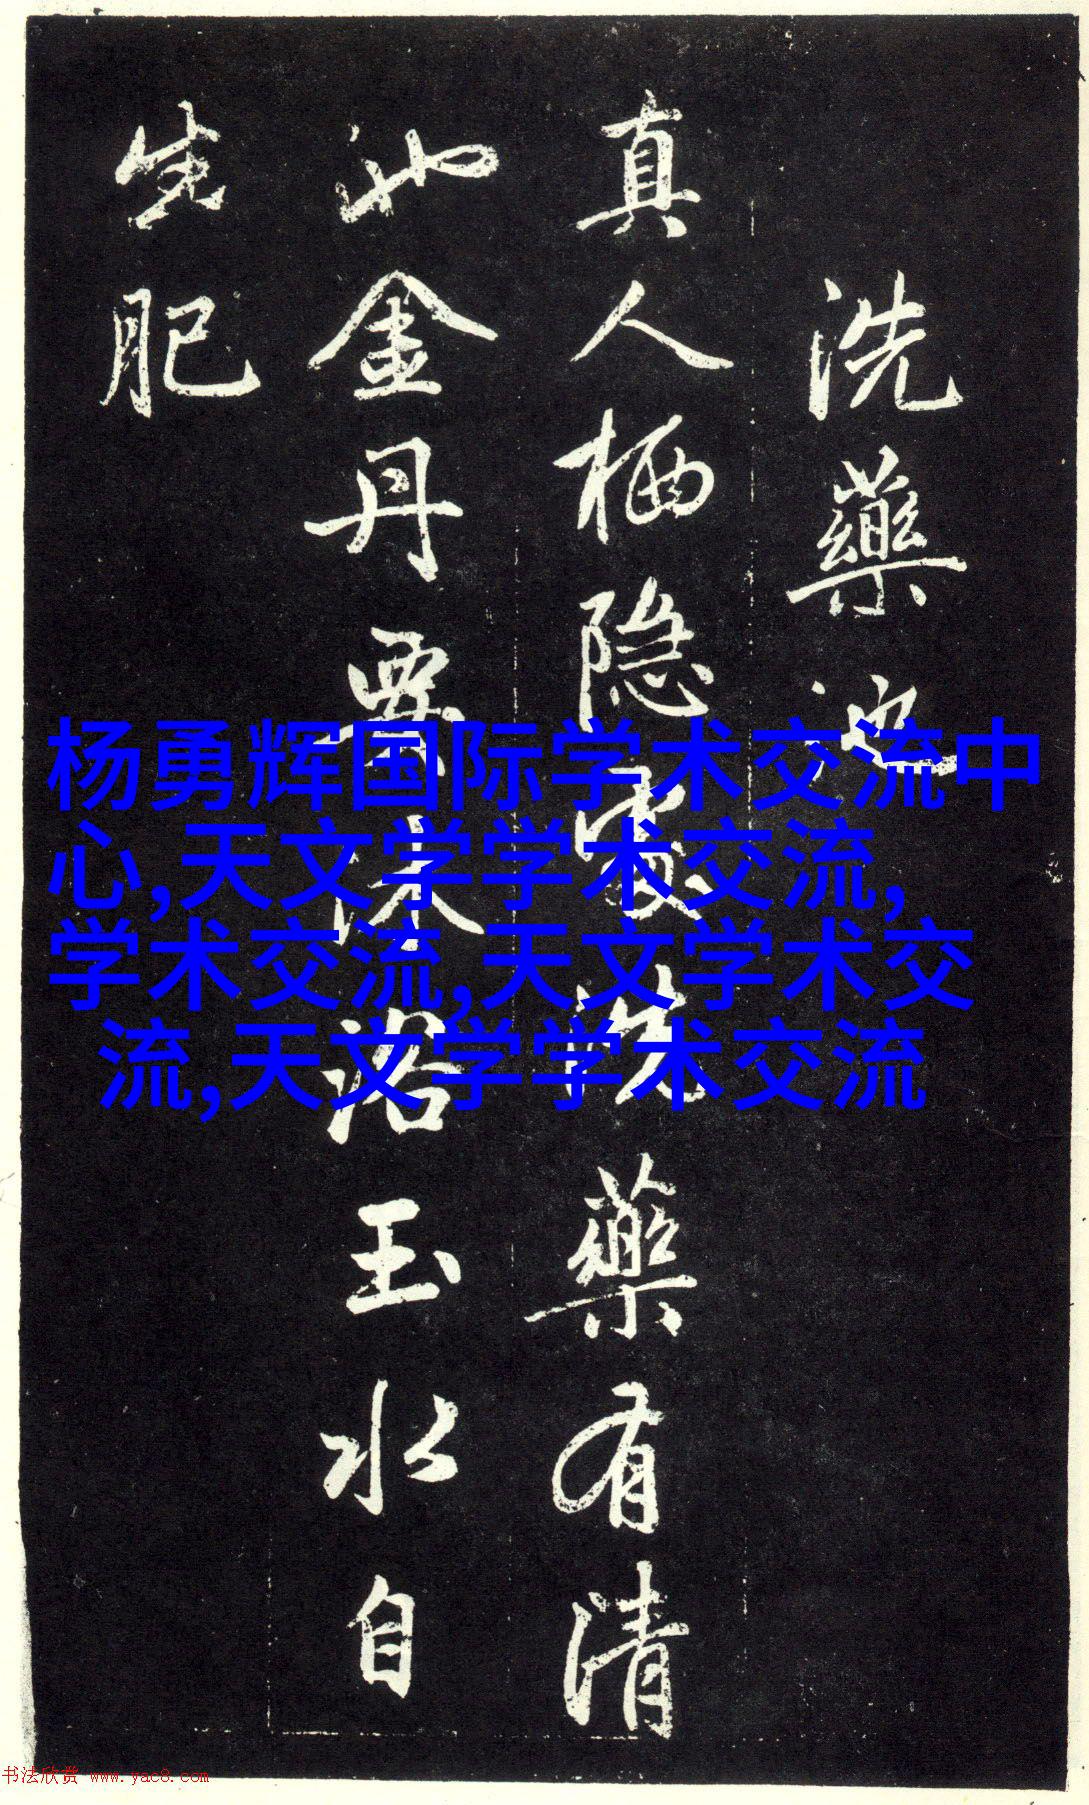 洗藥池
真人栖隐處洗藥有清
池金丹要沐浴玉水自
生肥
杨勇辉国际学术交流中
心,天文学学术交流,
学术交流,天文学术交
流,天文学学术交流
书法欣赏 www.yac8.com